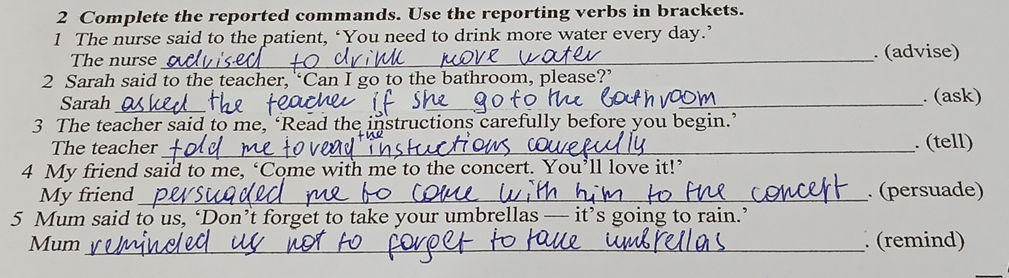 2 Complete the reported commands. Use the reporting verbs in brackets.
1 The nurse said to the patient, ‘You need to drink more water every day.’
The nurse advised to drink more water. (advise)
2 Sarah said to the teacher, ‘Can I go to the bathroom, please?’
Sarah asked the teacher if she go to the bathroom. (ask)
3 The teacher said to me, ‘Read the instructions carefully before you begin.’
The teacher told me to read the instuctions cowefully. (tell)
4 My friend said to me, ‘Come with me to the concert. You’ll love it!’
My friend persuaded me to come with him to the concert. (persuade)
5 Mum said to us, ‘Don’t forget to take your umbrellas — it’s going to rain.’
Mum reminded us not to forget to take umbrellas. (remind)